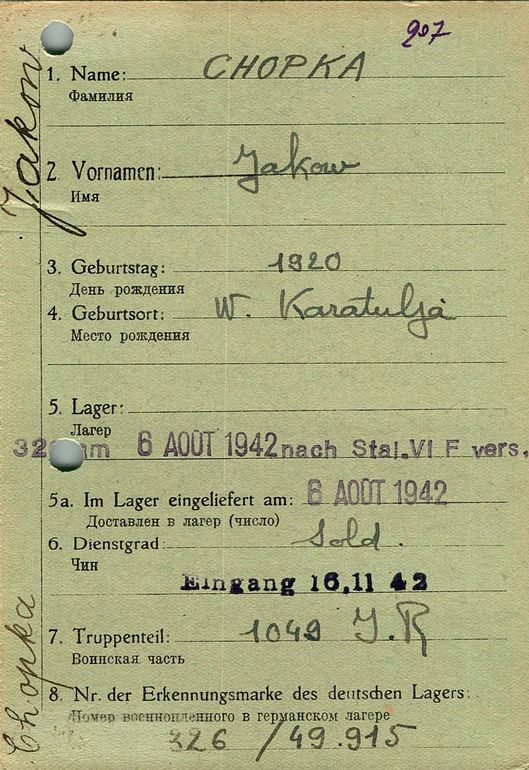 207
1. Name: CHOPKA
Фамилия
2. Vornamen: Jakow
Имя
3. Geburtstag: 1920
День рождения
4. Geburtsort: W. Karatulja
Место рождения
5. Lager:
Лагер
6 AOÛT 1942 nach Stal.VI F vers.
5a. Im Lager eingeliefert am: 6 AOÛT 1942
Доставлен в лагер (число)
6. Dienstgrad: Sold.
Чин
Eingang 16.11 42
7. Truppenteil: 1049 J.R
Воинская часть
8. Nr. der Erkennungsmarke des deutschen Lagers:
Номер военнопленного в германском лагере
326 / 49.915
Jakow
Chopka